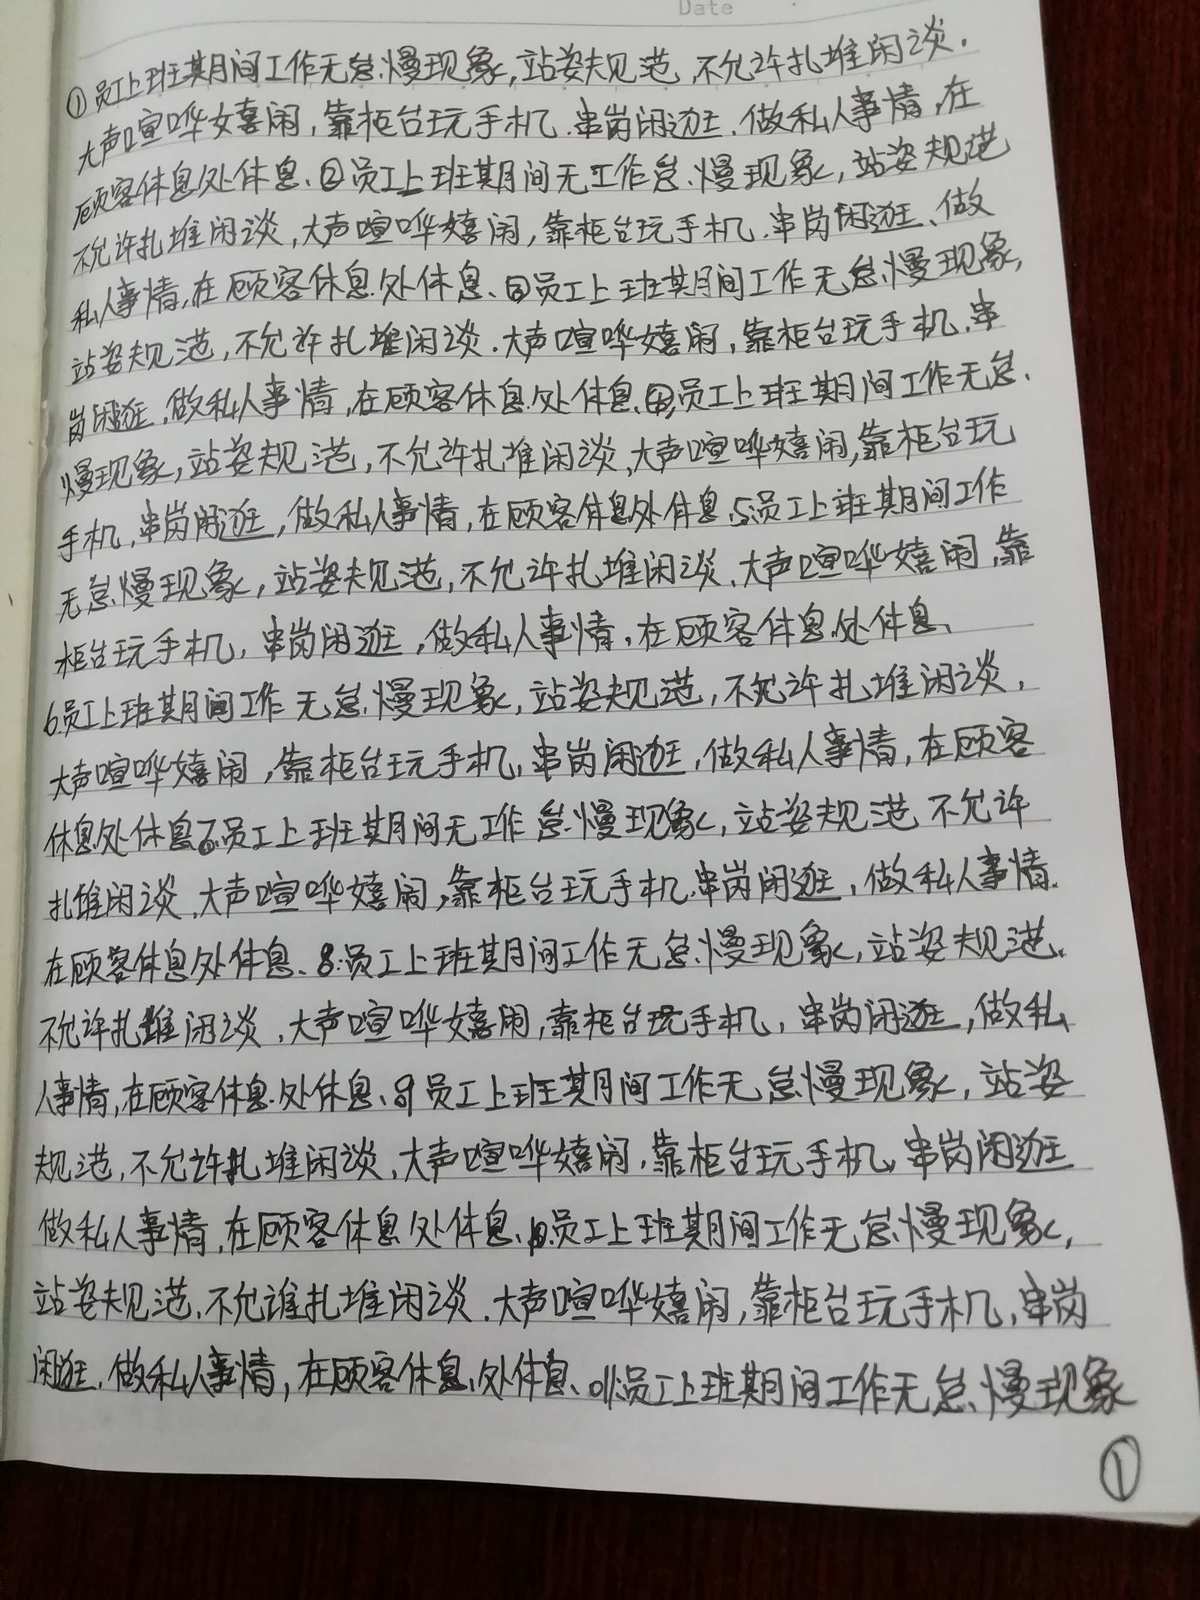 Date
①员工上班其月间工作无怠.慢现象,站姿规范,不允许扎堆闲谈.
大声喧哗嬉闹,靠柜台玩手机.串岗闲逛.做私人事情,在
顾客休息处休息、②员工上班其月间无工作怠.慢现象,站姿规范
不允许扎堆闲谈,大声喧哗嬉闹,靠柜台玩手机.串岗闲逛、做
私人事情,在顾客休息处休息、③员工上班其月间工作无怠.慢现象,
站姿规范,不允许扎堆闲谈.大声喧哗嬉闹,靠柜台玩手机.串
岗闲逛.做私人事情,在顾客休息处休息.④员工上班其月间工作无怠.
慢现象,站姿规范,不允许扎堆闲谈,大声喧哗嬉闹,靠柜台玩
手机,串岗闲逛,做私人事情,在顾客休息处休息.5.员工上班其月间工作
无怠.慢现象,站姿规范,不允许扎堆闲谈.大声喧哗嬉闹,靠
柜台玩手机,串岗闲逛,做私人事情,在顾客休息处休息、
6.员工上班其月间工作无怠.慢现象,站姿规范,不允许扎堆闲谈,
大声喧哗嬉闹,靠柜台玩手机,串岗闲逛,做私人事情,在顾客
休息处休息.员工上班其月间无工作怠.慢现象,站姿规范不允许
扎堆闲谈.大声喧哗嬉闹,靠柜台玩手机.串岗闲逛,做私人事情.
在顾客休息处休息、8.员工上班其月间工作无怠.慢现象,站姿规范、
不允许扎堆闲谈,大声喧哗嬉闹,靠柜台玩手机,串岗闲逛,做私
人事情,在顾客休息处休息、9员工上班其月间工作无怠.慢现象,站姿
规范,不允许扎堆闲谈,大声喧哗嬉闹,靠柜台玩手机,串岗闲逛
做私人事情,在顾客休息处休息、10.员工上班其月间工作无怠.慢现象,
站姿规范,不允谁扎堆闲谈.大声喧哗嬉闹,靠柜台玩手机,串岗
闲逛,做私人事情,在顾客休息处休息、11.员工上班其月间工作无怠、慢现象
①